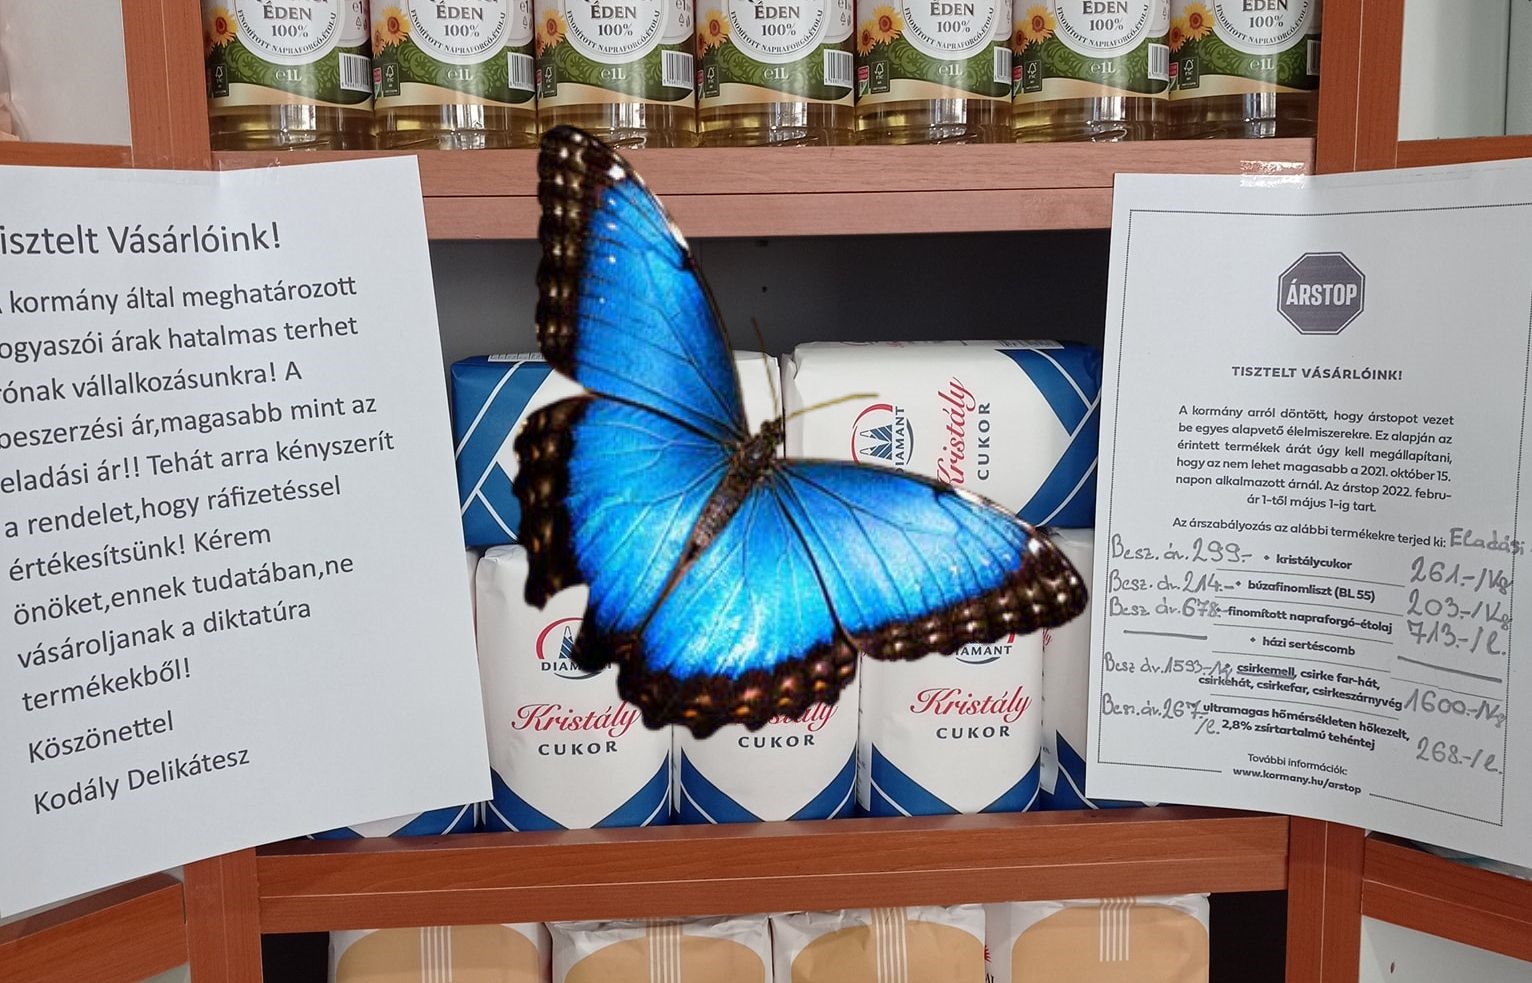 ÉDEN
100%
FINOMÍTOTT NAPRAFORGÓ-ÉTOLAJ
℮1L
ÉDEN
100%
FINOMÍTOTT NAPRAFORGÓ-ÉTOLAJ
℮1L
ÉDEN
100%
FINOMÍTOTT NAPRAFORGÓ-ÉTOLAJ
℮1L
ÉDEN
100%
FINOMÍTOTT NAPRAFORGÓ-ÉTOLAJ
℮1L
ÉDEN
100%
FINOMÍTOTT NAPRAFORGÓ-ÉTOLAJ
℮1L
ÉDEN
100%
FINOMÍTOTT NAPRAFORGÓ-ÉTOLAJ
℮1L
ÉDEN
100%
FINOMÍTOTT NAPRAFORGÓ-ÉTOLAJ
℮1L
isztelt Vásárlóink!
kormány által meghatározott
ogyaszói árak hatalmas terhet
rónak vállalkozásunkra! A
beszerzési ár,magasabb mint az
eladási ár!! Tehát arra kényszerít
a rendelet,hogy ráfizetéssel
értékesítsünk! Kérem
önöket,ennek tudatában,ne
vásároljanak a diktatúra
termékekből!
Köszönettel
Kodály Delikátesz
DIAMANT
Kristály
CUKOR
DIAM
Kristály
CUKOR
CUKOR
DIAMANT
Kristály
CUKOR
ÁRSTOP
TISZTELT VÁSÁRLÓINK!
A kormány arról döntött, hogy árstopot vezet
be egyes alapvető élelmiszerekre. Ez alapján az
érintett termékek árát úgy kell megállapítani,
hogy az nem lehet magasabb a 2021. október 15.
napon alkalmazott árnál. Az árstop 2022. febru-
ár 1-től május 1-ig tart.
Az árszabályozás az alábbi termékekre terjed ki: Eladási
Besz. ár. 299.- • kristálycukor 261.-/kg
Besz. ár. 214.- • búzafinomliszt (BL 55) 203.-/kg
Besz. ár. 678.- finomított napraforgó-étolaj 713.-/l.
• házi sertéscomb
Besz ár. 1593.- csirkemell, csirke far-hát,
csirkehát, csirkefar, csirkeszárnyvég 1600.-/kg
Besz. ár. 267.- ultramagas hőmérsékleten hőkezelt,
/l. 2,8% zsírtartalmú tehéntej 268.-/l.
További információk:
www.kormany.hu/arstop